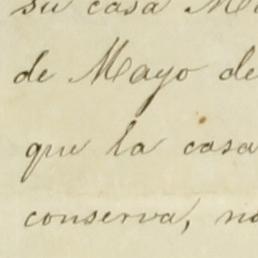 su casa
de Mayo de
que la casa
conserva,